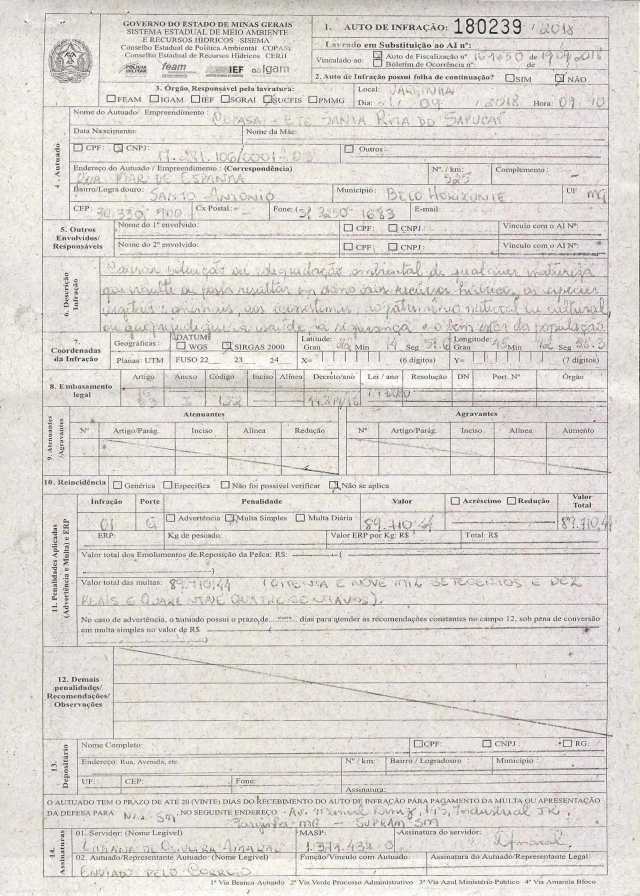 GOVERNO DO ESTADO DE MINAS GERAIS
SISTEMA ESTADUAL DE MEIO AMBIENTE
E RECURSOS HÍDRICOS - SISEMA
Conselho Estadual de Política Ambiental - COPAM
Conselho Estadual de Recursos Hídricos - CERH
feam IEF igam
1. AUTO DE INFRAÇÃO: 180239 / 2018
Lavrado em Substituição ao AI nº:
Vinculado ao: Auto de Fiscalização nº de
Boletim de Ocorrência nº de
2. Auto de Infração possui folha de continuação? SIM NÃO
3. Órgão Responsável pela lavratura:
FEAM IGAM IEF SGRAI SUCFIS PMMG
Local: VARGINHA
Dia: 09 2018 Hora: 09
4. Autuado
Nome do Autuado/ Empreendimento: COPASA - ETE SANTA RITA DO SAPUCAÍ
Data Nascimento: Nome da Mãe:
CPF: CNPJ: 17.281.106/0001 Outros:
Endereço do Autuado / Empreendimento: (Correspondência) Nº. / km: Complemento:
RUA MAR DE ESPANHA 525
Bairro/Logradouro: SANTO ANTÔNIO Município: BELO HORIZONTE UF MG
CEP: 30.330-900 Cx Postal: Fone: 3250-1683 E-mail:
5. Outros Envolvidos/ Responsáveis
Nome do 1º envolvido: CPF: CNPJ: Vínculo com o AI Nº:
Nome do 2º envolvido: CPF: CNPJ: Vínculo com o AI Nº:
6. Descrição Infração
Causar poluição ou degradação ambiental de qualquer natureza
que resulte ou possa resultar em dano aos recursos hídricos, às espécies
vegetais e animais, aos ecossistemas, ao patrimônio natural ou cultural,
ou que prejudique a saúde, a segurança e o bem estar da população.
7. Coordenadas da Infração
Geográficas: DATUM: WGS SIRGAS 2000 Latitude: Grau Min 14 Seg Longitude: Grau Min Seg
Planas: UTM FUSO 22 23 24 X= (6 dígitos) Y= (7 dígitos)
8. Embasamento legal
Artigo Anexo Código Inciso Alínea Decreto/ano Lei / ano Resolução DN Port. Nº Órgão
83 I 122
9. Atenuantes /Agravantes
Atenuantes Agravantes
Nº Artigo/Parág. Inciso Alínea Redução Nº Artigo/Parág. Inciso Alínea Aumento
10. Reincidência Genérica Específica Não foi possível verificar Não se aplica
11. Penalidades Aplicadas (Advertência e Multa) e ERP
Infração Porte Penalidade Valor Acréscimo Redução Valor Total
01 G Advertência Multa Simples Multa Diária 89.710,44 89.710,44
ERP: Kg de pescado: Valor ERP por Kg: R$ Total: R$
Valor total dos Emolumentos de Reposição da Pesca: R$:
Valor total das multas: 89.710,44 (OITENTA E NOVE MIL SETECENTOS E DEZ
REAIS E QUARENTA E QUATRO CENTAVOS).
No caso de advertência, o autuado possui o prazo de dias para atender as recomendações constantes no campo 12, sob pena de conversão
em multa simples no valor de R$
12. Demais penalidades/ Recomendações/ Observações
13. Depositário
Nome Completo: CPF: CNPJ RG:
Endereço: Rua, Avenida, etc. Nº / km: Bairro / Logradouro Município
UF: CEP: Fone: Assinatura:
O AUTUADO TEM O PRAZO DE ATÉ 20 (VINTE) DIAS DO RECEBIMENTO DO AUTO DE INFRAÇÃO PARA PAGAMENTO DA MULTA OU APRESENTAÇÃO
DA DEFESA PARA SM NO SEGUINTE ENDEREÇO - Av. Manoel Diniz, 145, Industrial JK.
Varginha MG - SUPRAM SM
14. Assinaturas
01. Servidor: (Nome Legível) MASP: Assinatura do servidor:
LUCIANA DE OLIVEIRA AMARAL Amaral
02. Autuado/Representante Autuado: (Nome Legível) Função/Vínculo com Autuado: Assinatura do Autuado/Representante Legal
ENVIADO PELO CORREIO
1ª Via Branca Autuado 2ª Via Verde Processo Administrativo 3ª Via Azul Ministério Público 4ª Via Amarela Bloco